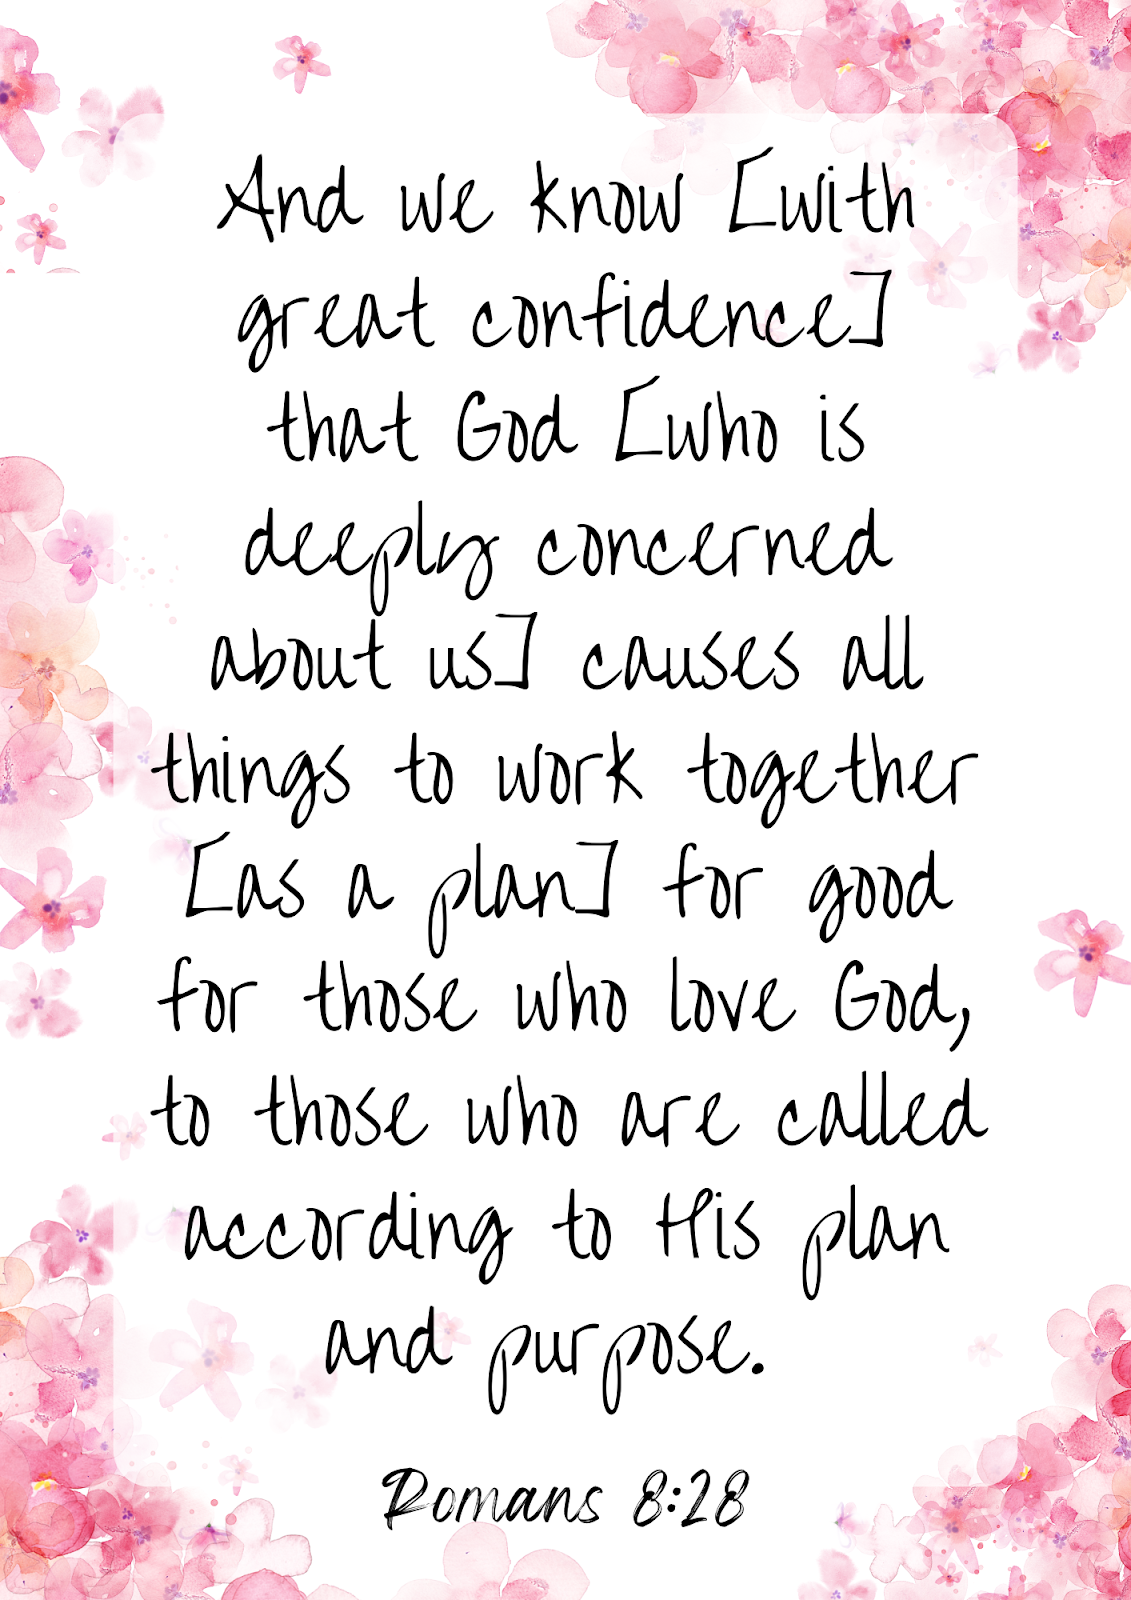 And we know [with
great confidence]
that God [who is
deeply concerned
about us] causes all
things to work together
[as a plan] for good
for those who love God,
to those who are called
according to His plan
and purpose.
Romans 8:28